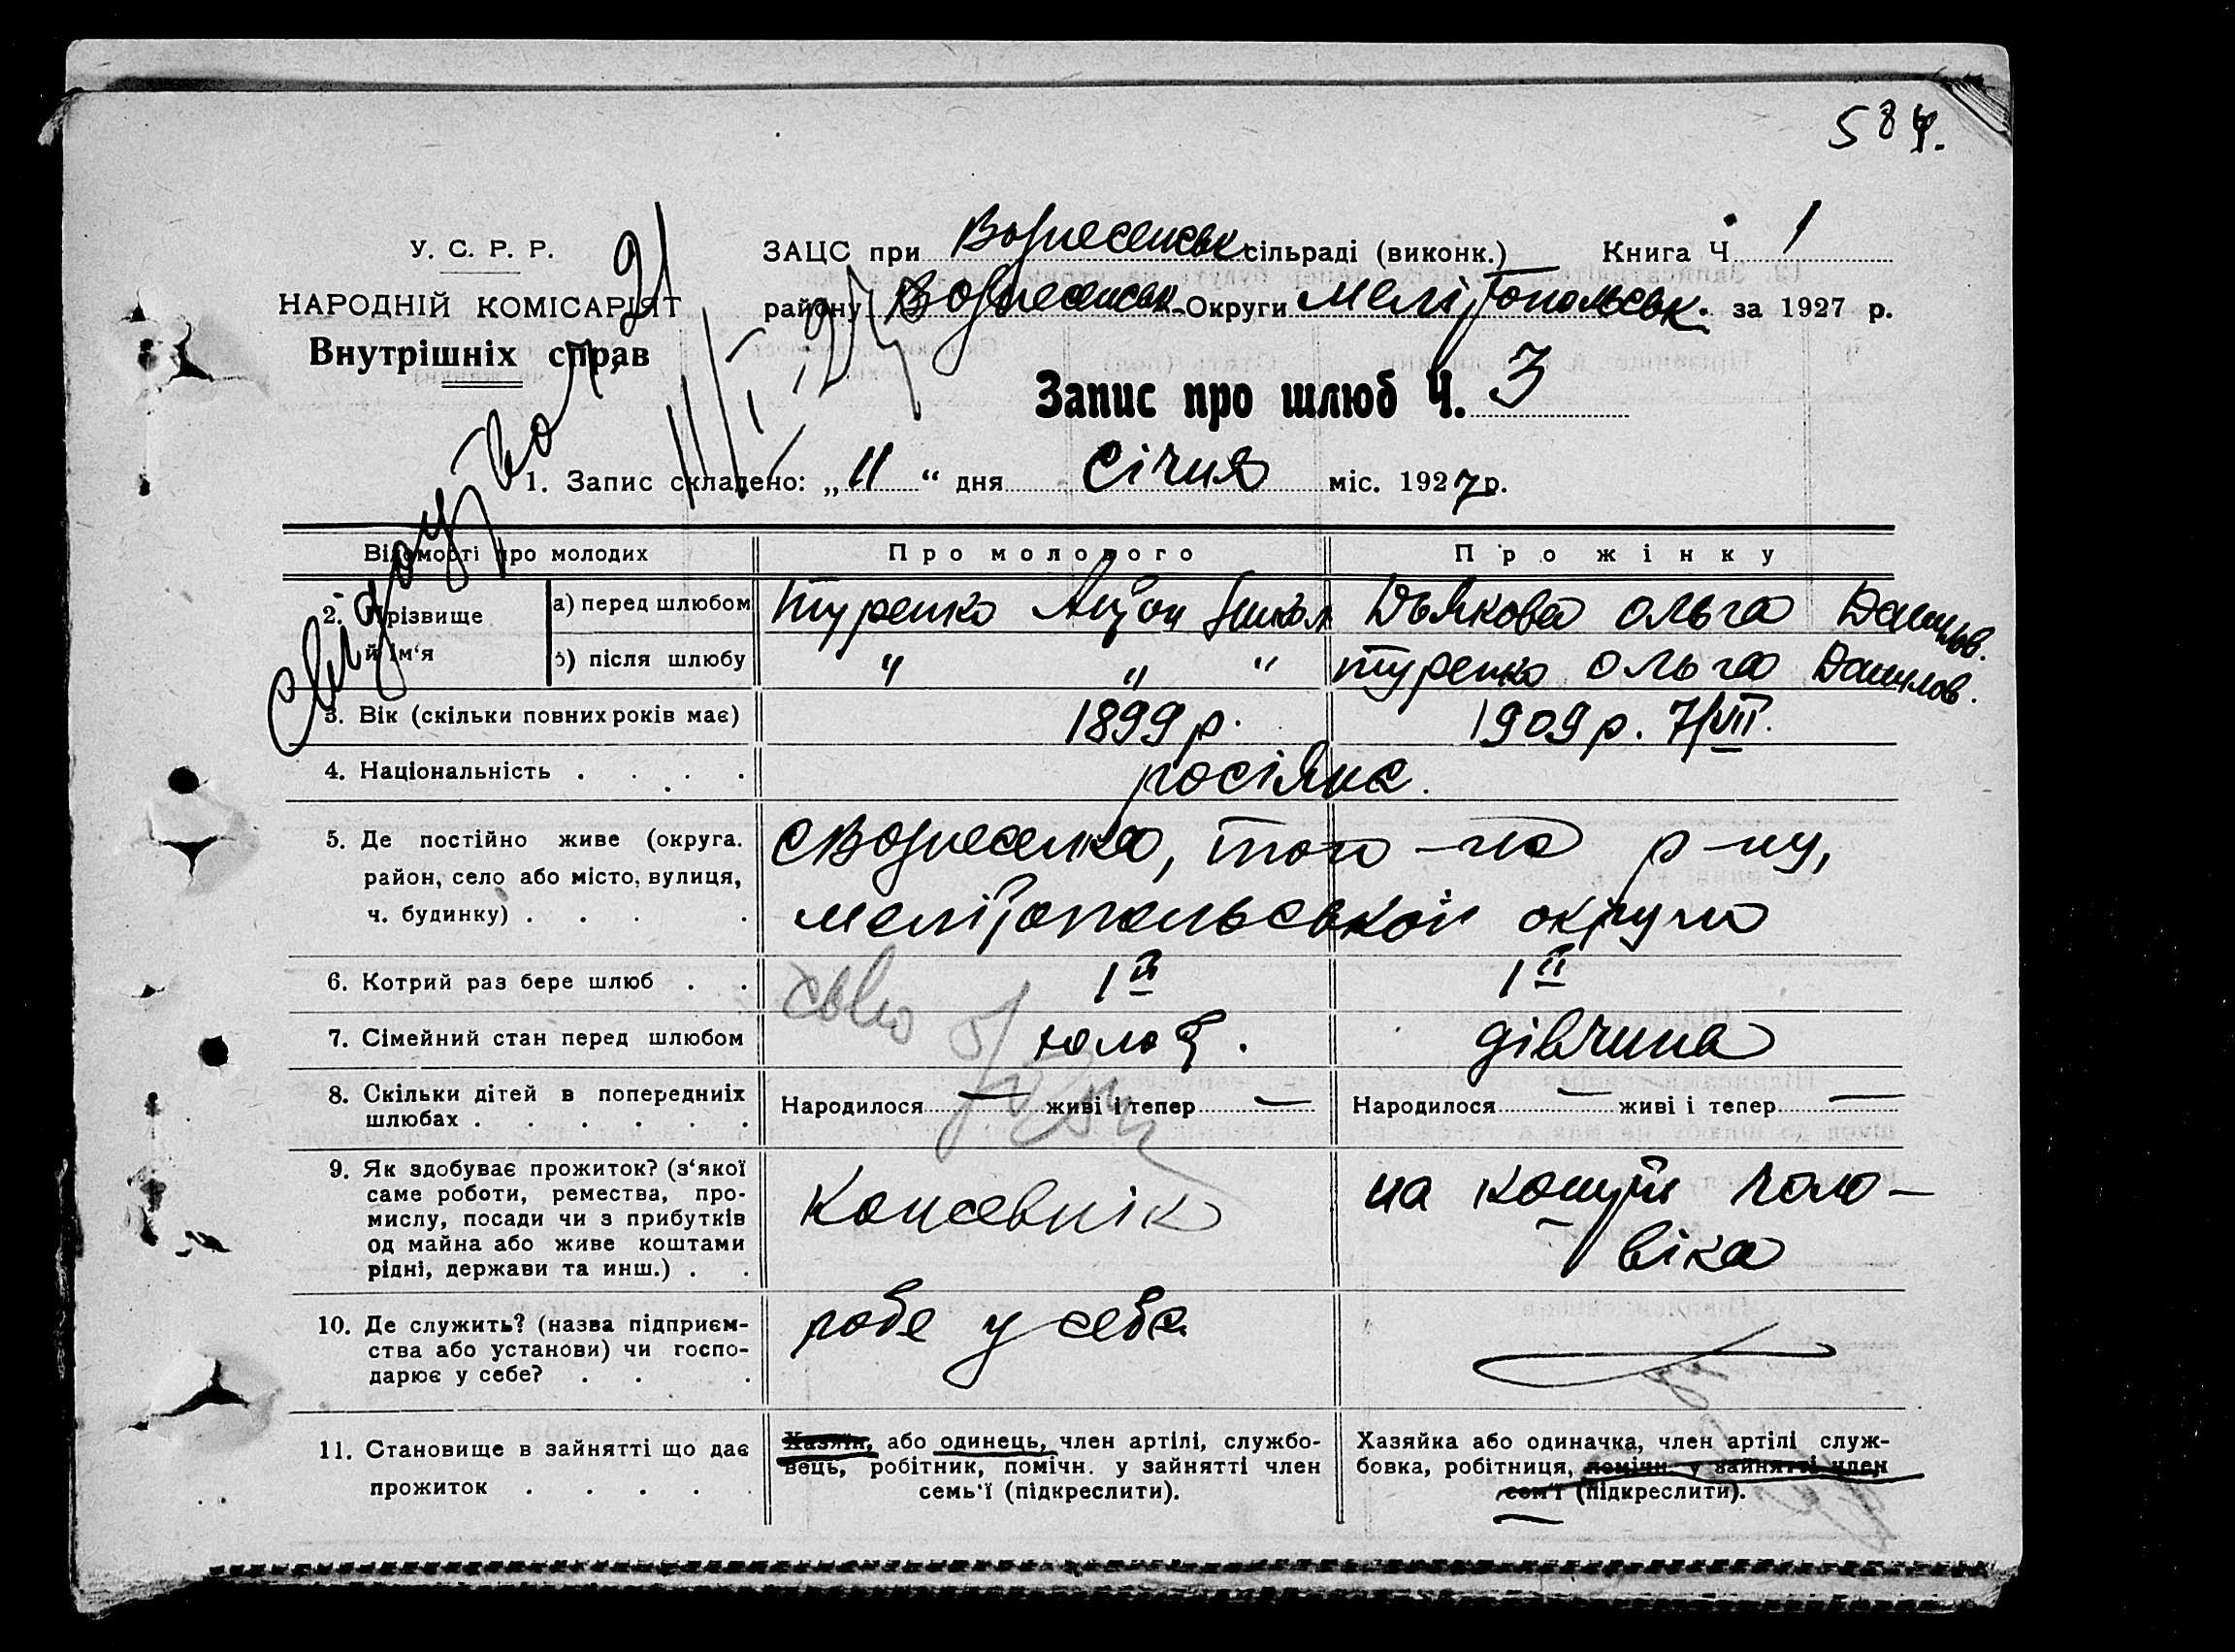 587.
У. С. Р. Р.
НАРОДНІЙ КОМІСАРІЯТ
Внутрішніх справ
ЗАЦС при Вознесенськ сільраді (виконк.) Книга Ч 1
району Вознесенськ. Округи Мелітопольськ. за 1927 р.
Запис про шлюб Ч. 3
11/I-27
1. Запис складено: „11“ дня січня міс. 1927 р.
Відомості про молодих Про молодого Про жінку
2. Прізвище й ім‘я а) перед шлюбом Туренко Антон Дьякова Ольга Данилов.
б) після шлюбу " " " Туренко Ольга Данилов.
3. Вік (скільки повних років має) 1899 р. 1909 р. 7/VII.
4. Націона́льність . . . . росіяне.
5. Де постійно живе (округа. район, село або місто, вулиця, ч. будинку) . . . .
с Вознесенка, того-ж р-ну,
Мелітопольської округи
6. Котрий раз бере шлюб . . 1й 1й
7. Сімейний стан перед шлюбом дівчина
8. Скільки дітей в попередниіх шлюбах . . . . . .
Народилося — живі і тепер — Народилося — живі і тепер —
9. Як здобуває прожиток? (з‘якої
саме роботи, ремества, про-
мислу, посади чи з прибутків
од майна або живе коштами
рідні, держави та инш.) . .
на кошти чоло-
віка
10. Де служить? (назва підприєм-
ства або установи) чи госпо-
дарює у себе? . . .
робе у себе
11. Становище в зайнятті що дає
прожиток . . . . .
Хазяїн, або одинець, член артілі, службо-
вець, робітник, помічн. у зайнятті член
семь‘ї (підкреслити).
Хазяйка або одиначка, член артілі служ-
бовка, робітниця, помічн. у зайнятті член
сем‘ї (підкреслити).